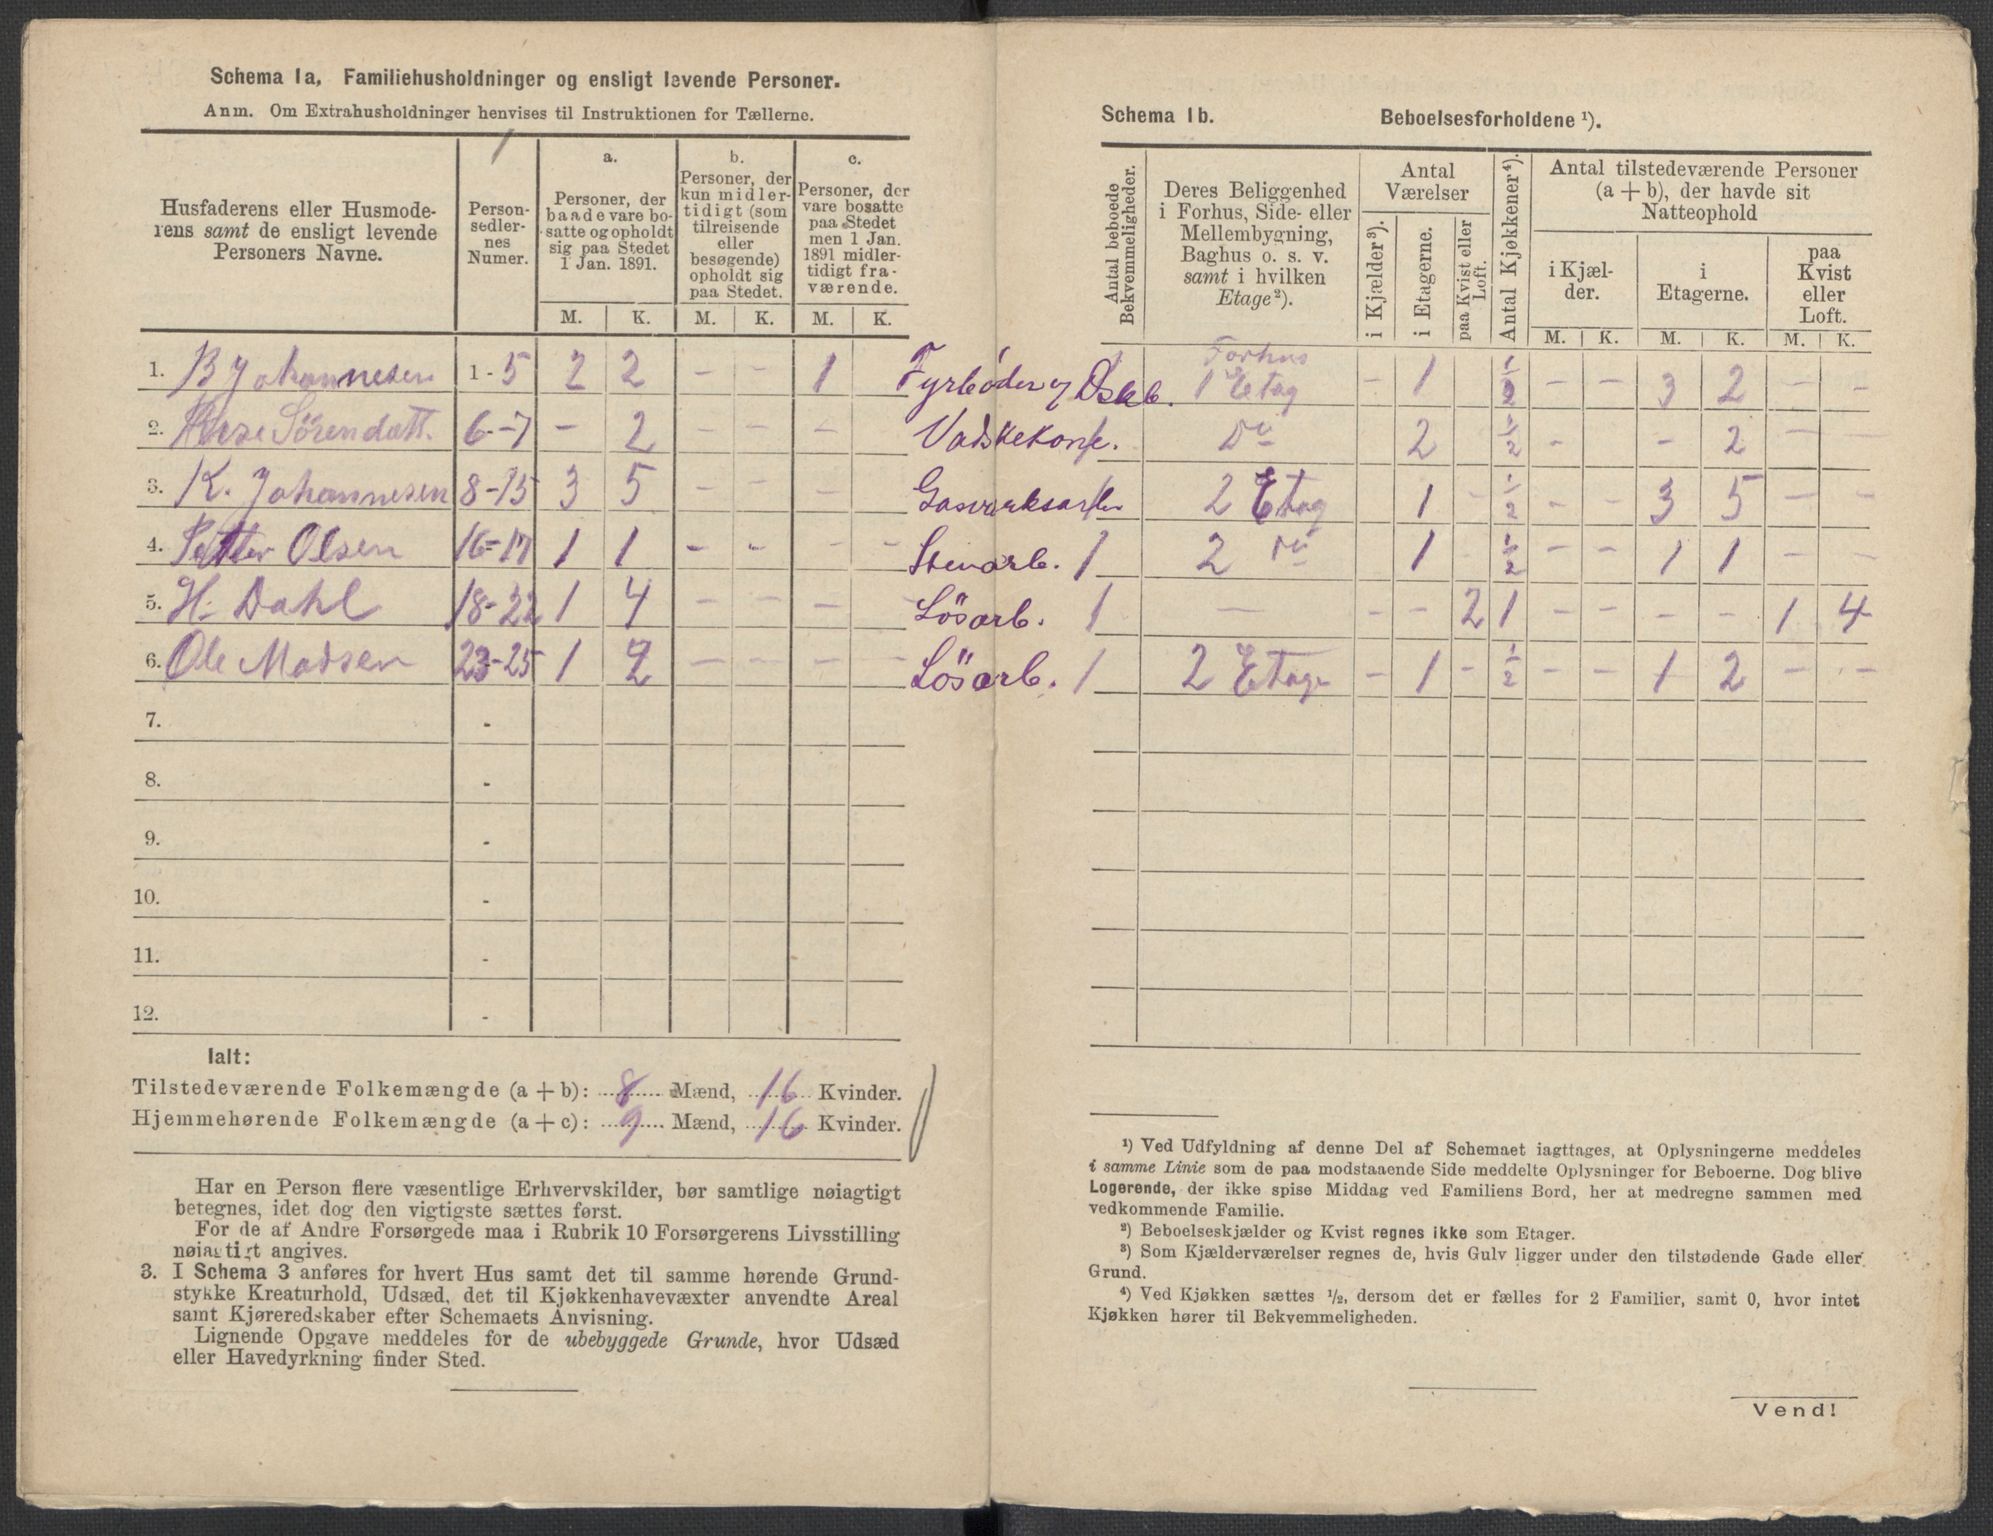 Schema 1a, Familiehusholdninger og ensligt levende Personer.
Anm. Om Extrahusholdninger henvises til Instruktionen for Tællerne.
Husfaderens eller Husmode-
rens samt de ensligt levende
Personers Navne.
Person-
sedler-
nes
Numer.
a.
Personer, der
baade vare bo-
satte og opholdt
sig paa Stedet
1 Jan. 1891.
b.
Personer, der
kun midler-
tidigt (som
tilreisende
eller
besøgende)
opholdt sig
paa Stedet.
c.
Personer, der
vare bosatte
paa Stedet
men 1 Jan.
1891 midler-
tidigt fra-
værende.
M. K. M. K. M. K.
1. B Johannesen 1-5 2 2 - - 1 Fyrbøder
2. Sörendatt. 6-7 - 2 - - - Vadskekone.
3. K. Johannesen 8-15 3 5 - - - Gasverksarb
4. Petter Olsen 16-17 1 1 - - - - Stenarb.
5. H. Dahl 18-22 1 4 - - - - Lösarb.
6. Ole Madsen 23-25 1 2 - - - - Lösarb.
7. -
8. -
9. -
10. -
11. -
12. -
Ialt:
Tilstedeværende Folkemængde (a + b): 8 Mænd, 16 Kvinder.
Hjemmehørende Folkemængde (a + c): 9 Mænd, 16 Kvinder.
Har en Person flere væsentlige Erhvervskilder, bør samtlige nøiagtigt
betegnes, idet dog den vigtigste sættes først.
For de af Andre Forsørgede maa i Rubrik 10 Forsørgerens Livsstilling
nøiagtigt angives.
3. I Schema 3 anføres for hvert Hus samt det til samme hørende Grund-
stykke Kreaturhold, Udsæd, det til Kjøkkenhavevæxter anvendte Areal
samt Kjøreredskaber efter Schemaets Anvisning.
Lignende Opgave meddeles for de ubebyggede Grunde, hvor Udsæd
eller Havedyrkning finder Sted.
Schema 1b. Beboelsesforholdene ¹).
Antal beboede
Bekvemmeligheder.
Deres Beliggenhed
i Forhus, Side- eller
Mellembygning,
Baghus o. s. v.
samt i hvilken
Etage ²).
Antal
Værelser
i Kjælder ³).
i Etagerne.
paa Kvist eller
Loft.
Antal Kjøkkener ⁴).
Antal tilstedeværende Personer
(a + b), der havde sit
Natteophold
i Kjæl-
der.
i
Etagerne.
paa
Kvist
eller
Loft.
M. K. M. K. M. K.
Forhus
1 Etag - 1 ½ - - 3 2 - -
1 Do 2 ½ - - 2 - -
2 Etag 1 - ½ - - 3 5 - -
1 2 do 1 ½ - - 1 1 - -
1 - - - 2 1 - - - - 1 4
1 2 Etage - 1 - ½ - - 1 2 - -
¹) Ved Udfyldning af denne Del af Schemaet iagttages, at Oplysningerne meddeles
i samme Linie som de paa modstaaende Side meddelte Oplysninger for Beboerne. Dog blive
Logerende, der ikke spise Middag ved Familiens Bord, her at medregne sammen med
vedkommende Familie.
²) Beboelseskjælder og Kvist regnes ikke som Etager.
³) Som Kjælderværelser regnes de, hvis Gulv ligger under den tilstødende Gade eller
Grund.
⁴) Ved Kjøkken sættes ½, dersom det er fælles for 2 Familier, samt 0, hvor intet
Kjøkken hører til Bekvemmeligheden.
Vend!